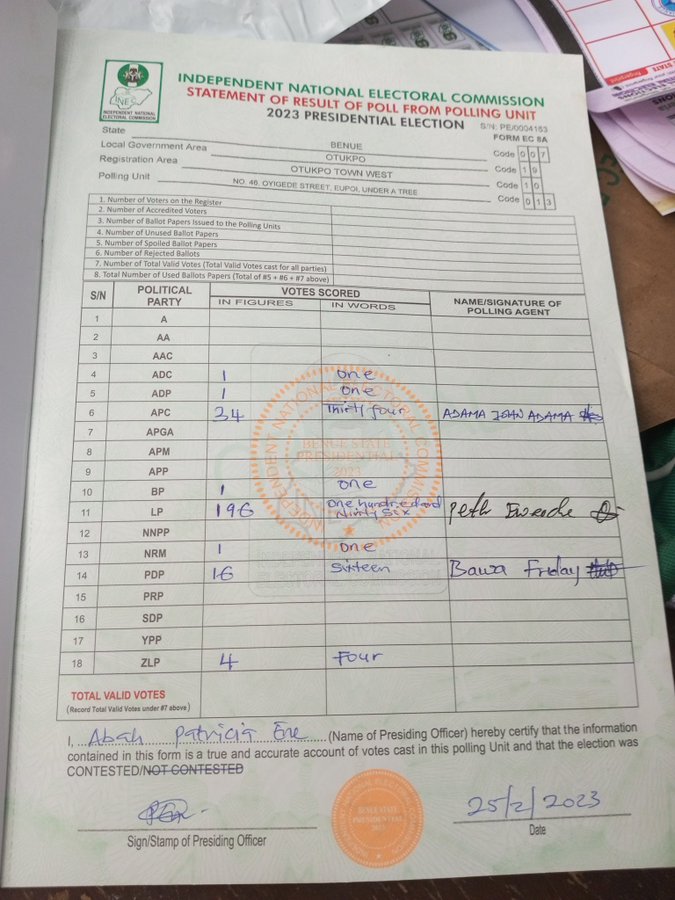 INDEPENDENT NATIONAL ELECTORAL COMMISSION
STATEMENT OF RESULT OF POLL FROM POLLING UNIT
2023 PRESIDENTIAL ELECTION
S/N: PE/0004163
FORM EC 8A
INEC
INDEPENDENT NATIONAL ELECTORAL COMMISSION
State BENUE Code 007
Local Government Area OTUKPO Code 19
Registration Area OTUKPO TOWN WEST Code 10
Polling Unit NO. 46, OYIGEDE STREET, EUPOI, UNDER A TREE Code 013
1. Number of Voters on the Register
2. Number of Accredited Voters
3. Number of Ballot Papers Issued to the Polling Units
4. Number of Unused Ballot Papers
5. Number of Spoiled Ballot Papers
6. Number of Rejected Ballots
7. Number of Total Valid Votes (Total Valid Votes cast for all parties)
8. Total Number of Used Ballots Papers (Total of #5 + #6 + #7 above)
S/N POLITICAL PARTY VOTES SCORED NAME/SIGNATURE OF POLLING AGENT
IN FIGURES IN WORDS
1 A
2 AA
3 AAC
4 ADC 1 one
5 ADP 1 one
6 APC 34 Thirty four ADAMA JOHN ADAMA
7 APGA
8 APM
9 APP
10 BP 1 one
11 LP 196 One hundred and Ninty Six
12 NNPP
13 NRM 1 one
14 PDP 16 Sixteen Bawa Friday
15 PRP
16 SDP
17 YPP
18 ZLP 4 Four
TOTAL VALID VOTES
(Record Total Valid Votes under #7 above)
INDEPENDENT NATIONAL ELECTORAL COMMISSION
BENUE STATE
PRESIDENTIAL
2023
I, Abah Patricia Ene (Name of Presiding Officer) hereby certify that the information
contained in this form is a true and accurate account of votes cast in this polling Unit and that the election was
CONTESTED/NOT CONTESTED
25/2/2023
Sign/Stamp of Presiding Officer
Date
BENUE STATE
PRESIDENTIAL
2023